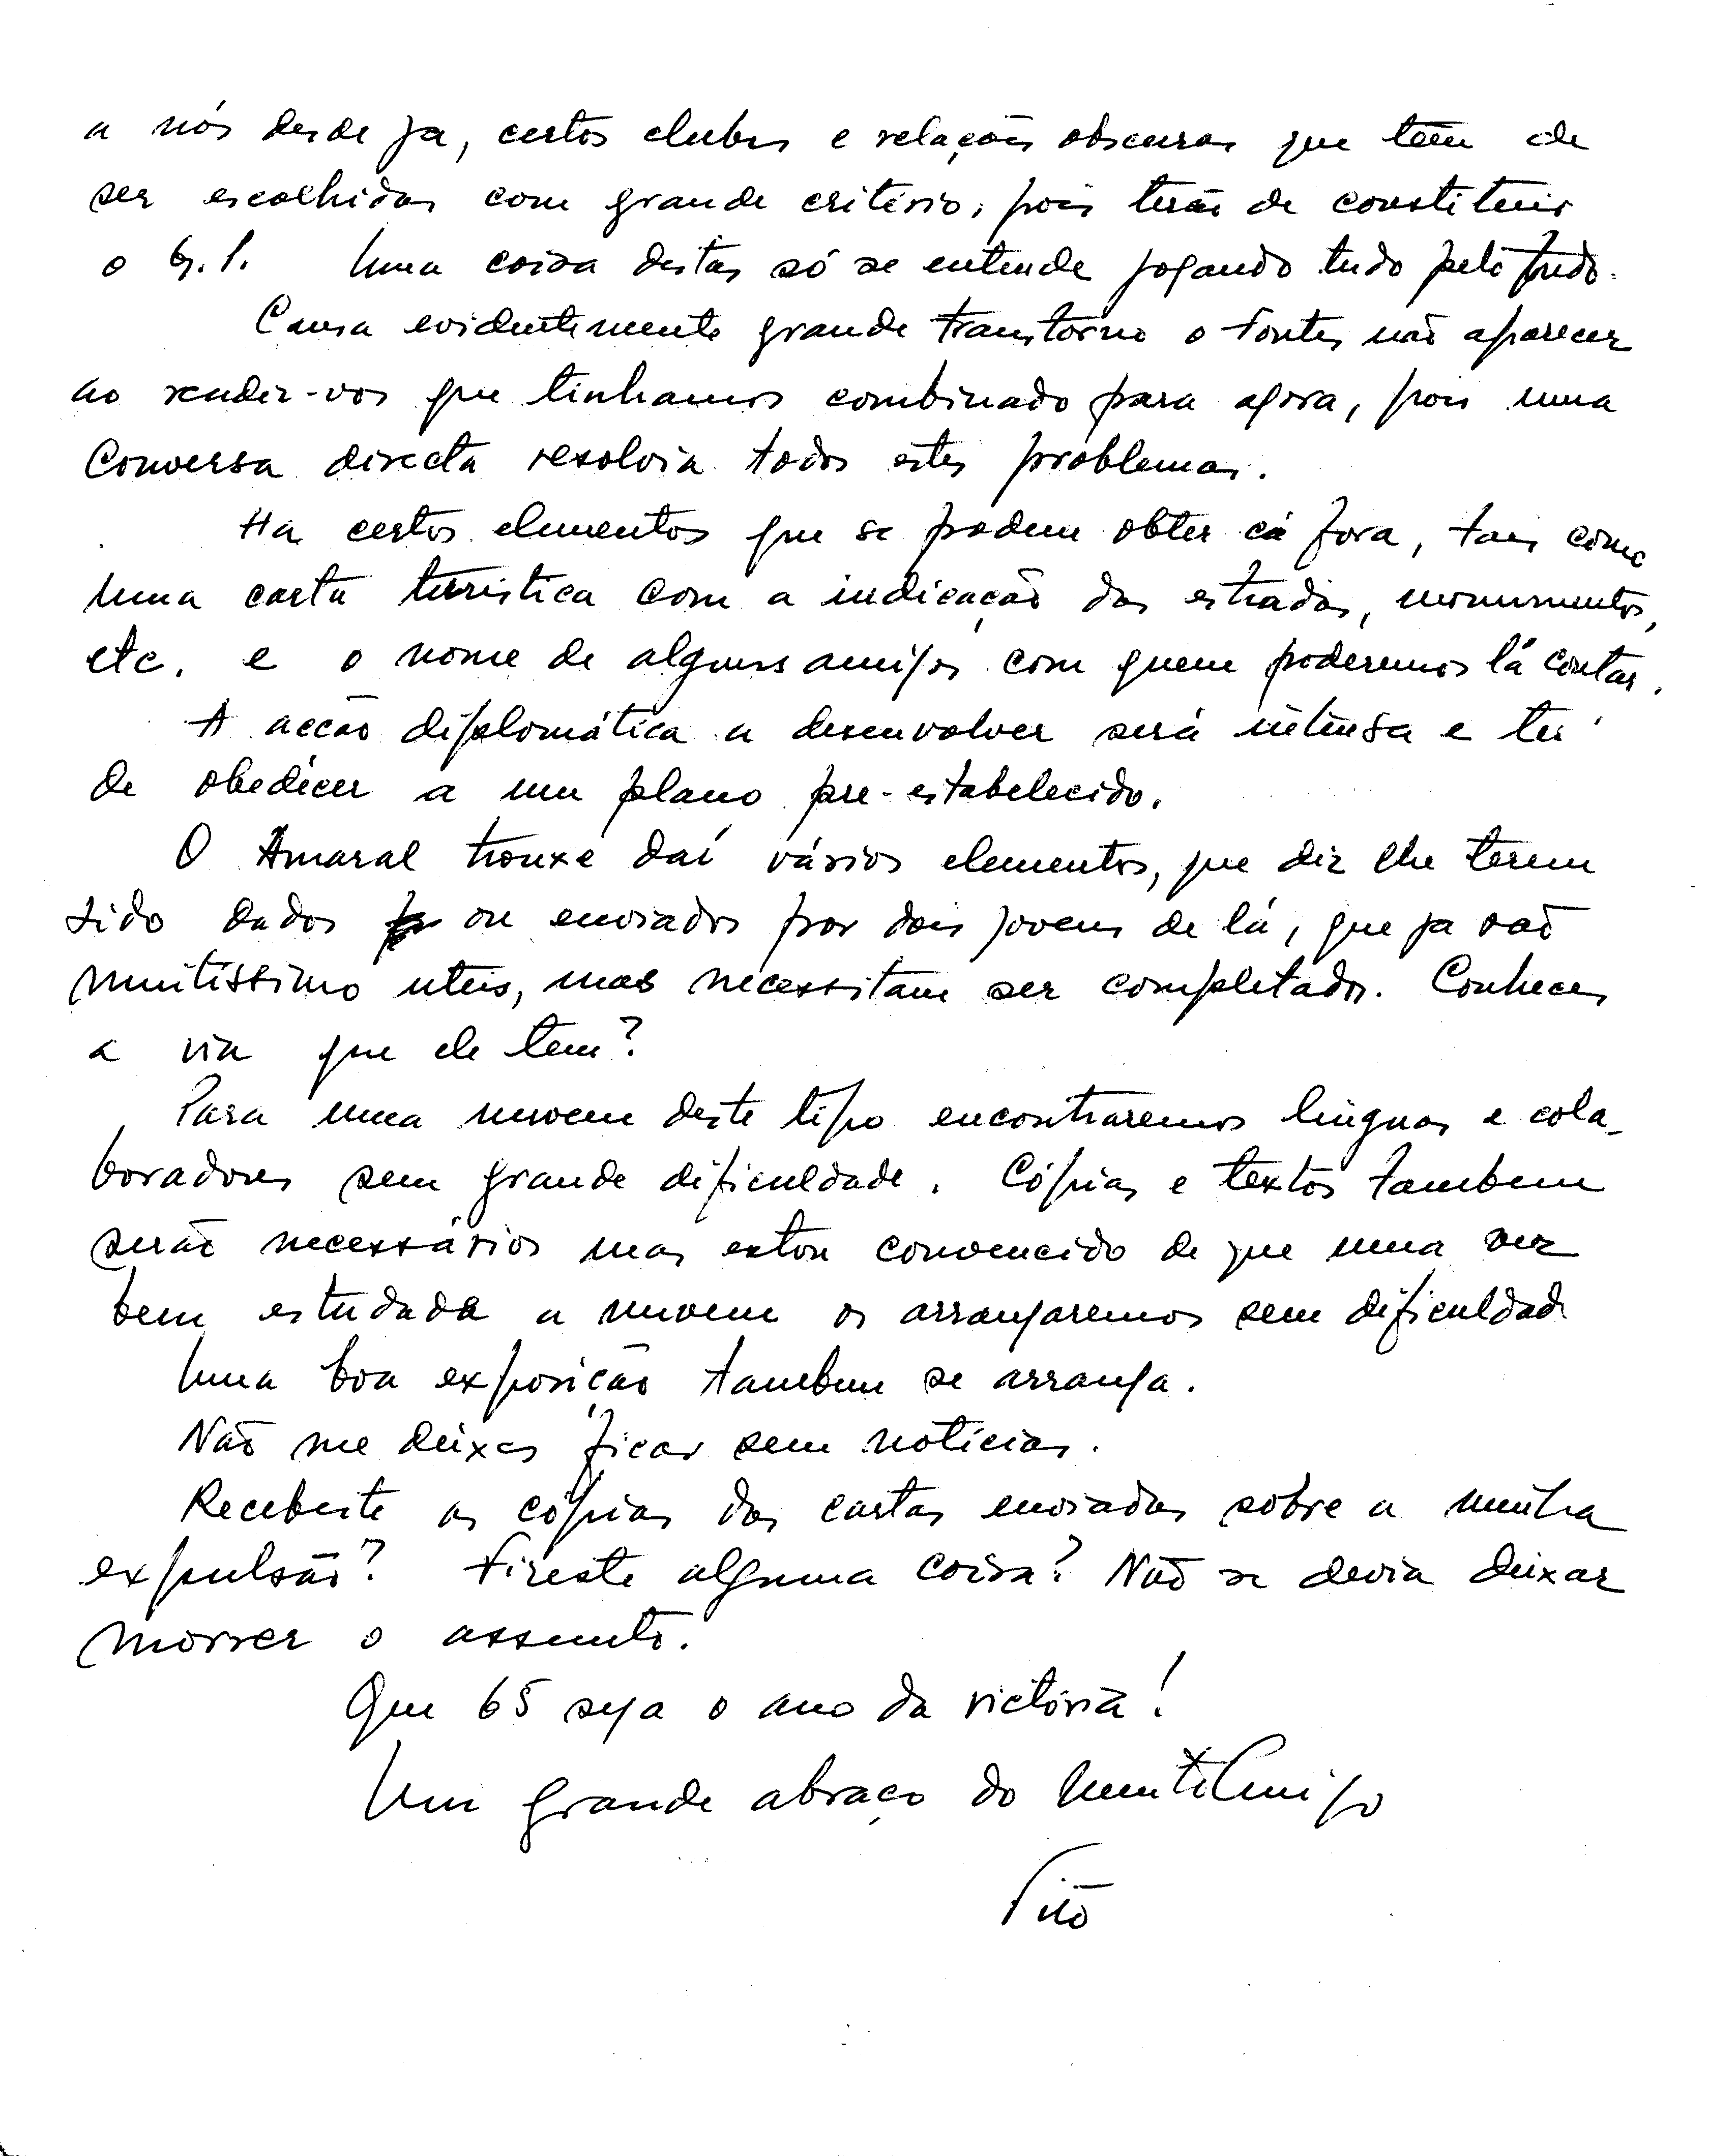 a nós desde ja, certos clubes e relações obscuras que teem de
ser escolhidas com grande critério, pois terão de constituir
o G.P. Uma coisa destas só se entende jogando tudo pelo tudo.
Causa evidentemente grande transtorno o Fontes não aparecer
ao rendez-vos que tinhamos combinado para agora, pois uma
conversa directa resolvia todos estes problemas.
Ha certos elementos que se podem obter cá fora, tais como
uma carta turristica com a indicação das estradas, monumentos,
etc. e o nome de alguns amigos com quem poderemos lá contar.
A acção diplomática a desenvolver será intensa e terá
de obedecer a um plano pre-estabelecido.
O Amaral trouxe daí vários elementos, que diz lhe terem
sido dados ou enviados por dois jovens de lá, que ja são
muitissimo uteis, mas necessitam ser completados. Conheces
a via que ele tem?
Para uma nuvem deste tipo encontraremos linguas e cola-
boradores sem grande dificuldade. Cópias e textos tambem
serão necessários mas estou convencido de que uma vez
bem estudada a nuvem os arranjaremos sem dificuldade
Uma boa exposição tambem se arranja.
Não me deixes ficar sem noticias.
Recebeste as cópias das cartas enviadas sobre a minha
expulsão? Fizeste alguma coisa? Não se devia deixar
morrer o assunto.
Que 65 seja o ano da victória!
Um grande abraço do muito Amigo